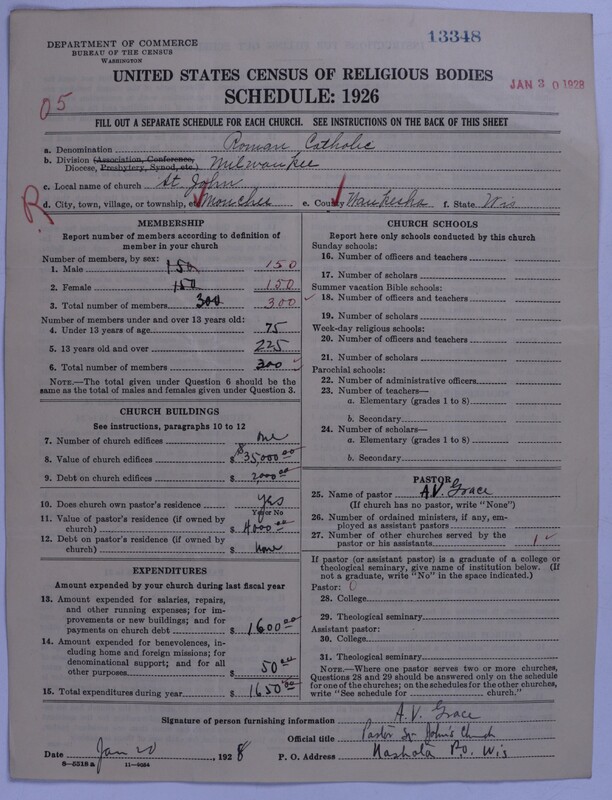 13348
DEPARTMENT OF COMMERCE
BUREAU OF THE CENSUS
WASHINGTON
UNITED STATES CENSUS OF RELIGIOUS BODIES
JAN 30 1928
SCHEDULE: 1926
05
FILL OUT A SEPARATE SCHEDULE FOR EACH CHURCH. SEE INSTRUCTIONS ON THE BACK OF THIS SHEET
a. Denomination Roman Catholic
b. Division (Association, Conference,
Diocese, Presbytery, Synod, etc.) Milwaukee
c. Local name of church St John
R
d. City, town, village, or township, Monches e. County Waukesha f. State Wis
MEMBERSHIP
Report number of members according to definition of
member in your church
Number of members, by sex:
1. Male 150 150
2. Female 150 150
3. Total number of members 300 300
Number of members under and over 13 years old:
4. Under 13 years of age 75
5. 13 years old and over 225
6. Total number of members 300
NOTE.—The total given under Question 6 should be the
same as the total of males and females given under Question 3.
CHURCH BUILDINGS
See instructions, paragraphs 10 to 12
7. Number of church edifices one
8. Value of church edifices $ 35,000 00
9. Debt on church edifices $ 2,000 00
10. Does church own pastor's residence Yes
Yes or No
11. Value of pastor's residence (if owned by
church) $ 4000 00
12. Debt on pastor's residence (if owned by
church) $ None
EXPENDITURES
Amount expended by your church during last fiscal year
13. Amount expended for salaries, repairs,
and other running expenses; for im-
provements or new buildings; and for
payments on church debt $ 1600 00
14. Amount expended for benevolences, in-
cluding home and foreign missions; for
denominational support; and for all
other purposes $ 50 00
15. Total expenditures during year $ 1650 00
CHURCH SCHOOLS
Report here only schools conducted by this church
Sunday schools:
16. Number of officers and teachers
17. Number of scholars
Summer vacation Bible schools:
18. Number of officers and teachers
19. Number of scholars
Week-day religious schools:
20. Number of officers and teachers
21. Number of scholars
Parochial schools:
22. Number of administrative officers
23. Number of teachers—
a. Elementary (grades 1 to 8)
b. Secondary
24. Number of scholars—
a. Elementary (grades 1 to 8)
b. Secondary
PASTOR
25. Name of pastor A.V. Grace
(If church has no pastor, write "None")
26. Number of ordained ministers, if any, em-
ployed as assistant pastors
27. Number of other churches served by the
pastor or his assistants 1
If pastor (or assistant pastor) is a graduate of a college or
theological seminary, give name of institution below. (If
not a graduate, write "No" in the space indicated.)
Pastor: 0
28. College
29. Theological seminary
Assistant pastor:
30. College
31. Theological seminary
NOTE.—Where one pastor serves two or more churches,
Questions 28 and 29 should be answered only on the schedule
for one of the churches; on the schedules for the other churches,
write "See schedule for church."
Signature of person furnishing information A.V. Grace
Official title Pastor St John's Church
Date Jan 20 1928 P. O. Address Nashota P.O. Wis
6—5518 a 11—9584